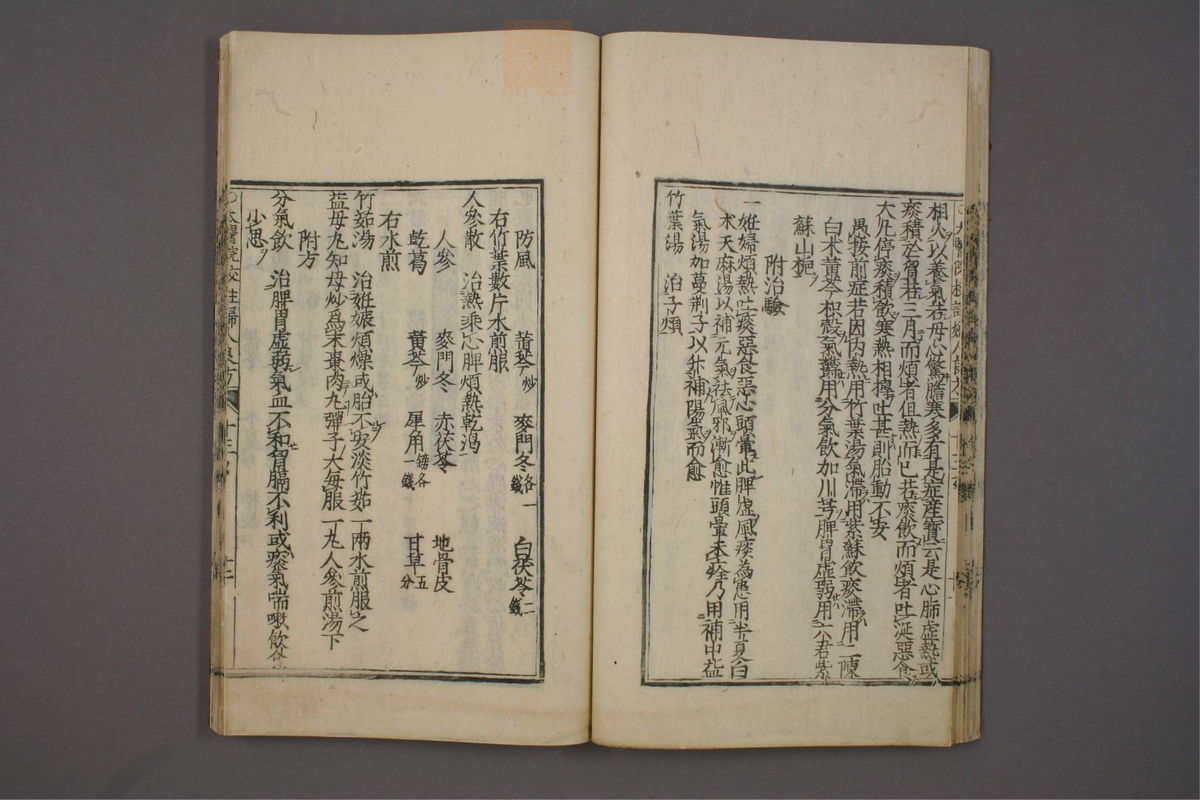 相火以養氣若母心驚膽寒多有是症產寶云是心肺虛熱或
痰積於胷若三月而煩者但熱而已若痰飲而煩者吐涎惡食
大凡停痰積飲寒熱相搏吐甚則胎動不安
愚按前症若因內熱用竹葉湯氣滯用紫蘇飲痰滯用二陳
白朮黃芩枳殼氣鬱用分氣飲加川芎脾胃虛弱用六君紫
蘇山梔
附治驗
一妊婦煩熱吐痰惡食惡心頭暈此脾虛風痰為患用半夏白
朮天麻湯以補元氣袪風邪漸愈惟頭暈未痊乃用補中益
氣湯加蔓荆子以升補陽氣而愈
竹葉湯 治子煩
防風 黃芩炒 麥門冬各一錢 白茯苓二錢
右竹葉數片水煎服
人參散 治熱乘心脾煩熱乾渴
人參 麥門冬 赤茯苓 地骨皮
乾葛 黃芩炒 犀角各一錢 甘草五分
右水煎
竹茹湯 治妊娠煩燥或胎不安淡竹茹一兩水煎服之
益母丸知母炒爲末棗肉丸彈子大每服一丸人參煎湯下
附方
分氣飲 治脾胃虛弱氣血不和胷膈不利或痰氣喘嗽飲食
少思
○太醫院校註婦人良方 十三